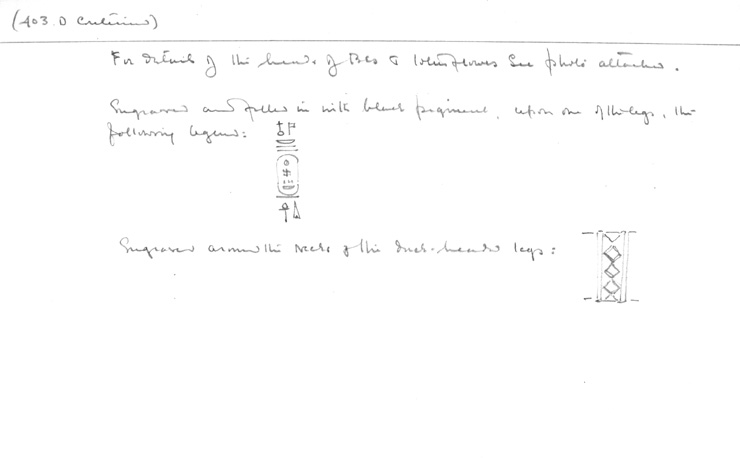 (403. D Continued)
For details of the heads of Bes & lotus flowers see photo attached.
Engraved and filled in with black pigment, upon one of the legs, the
following legend:
Engraved around the necks of the duck-headed legs: